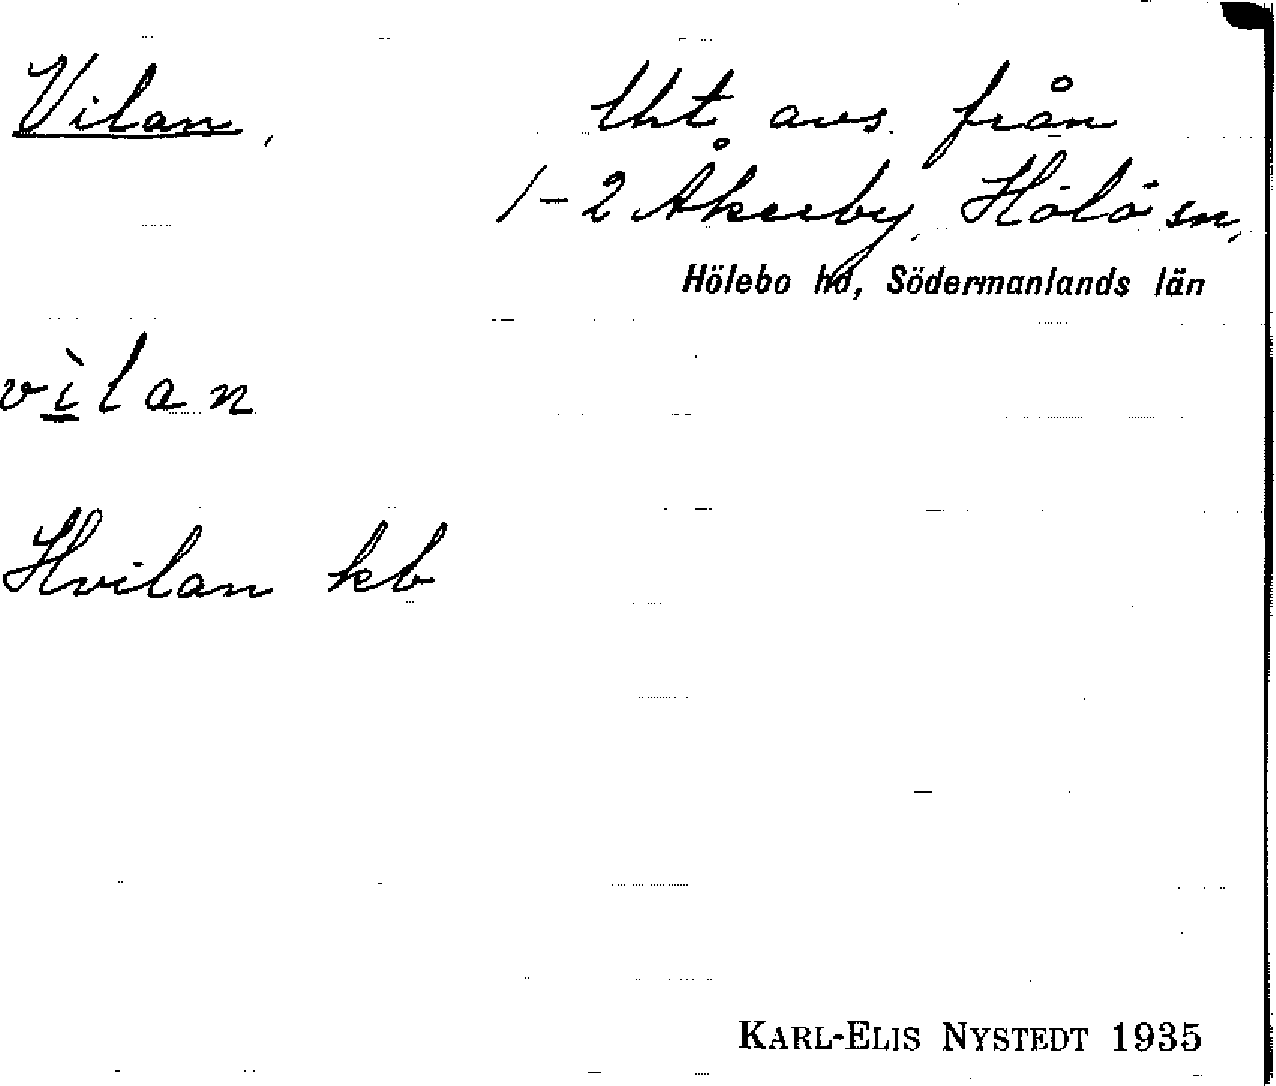 Vilan, lht avs. från
1-2 Åkerby, Hölö sn,
Hölebo hd, Södermanlands län
vìlan
Hvilan kb
KARL-ELIS NYSTEDT 1935